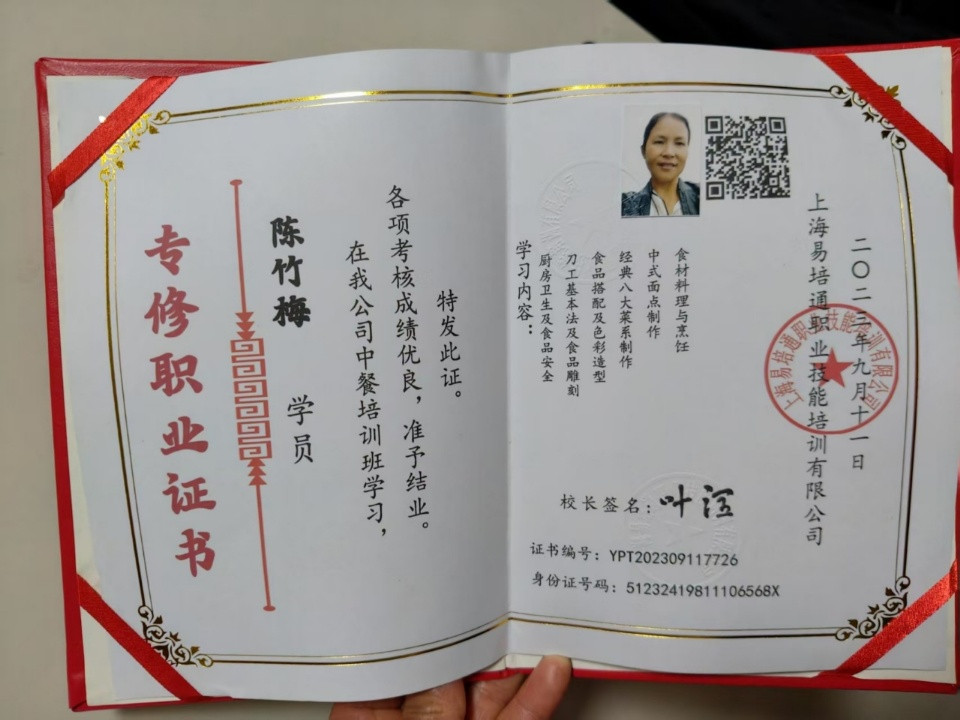 专修职业证书
陈竹梅 学员
在我公司中餐培训班学习，
各项考核成绩优良，准予结业。
特发此证。
学习内容：
厨房卫生及食品安全
刀工基本法及食品雕刻
食品搭配及色彩造型
经典八大菜系制作
中式面点制作
食材料理与烹饪
校长签名：叶
证书编号：YPT202309117726
身份证号码：51232419811106568X
上海易培通职业技能培训有限公司
二〇二三年九月十一日
上海易培通职业技能培训有限公司